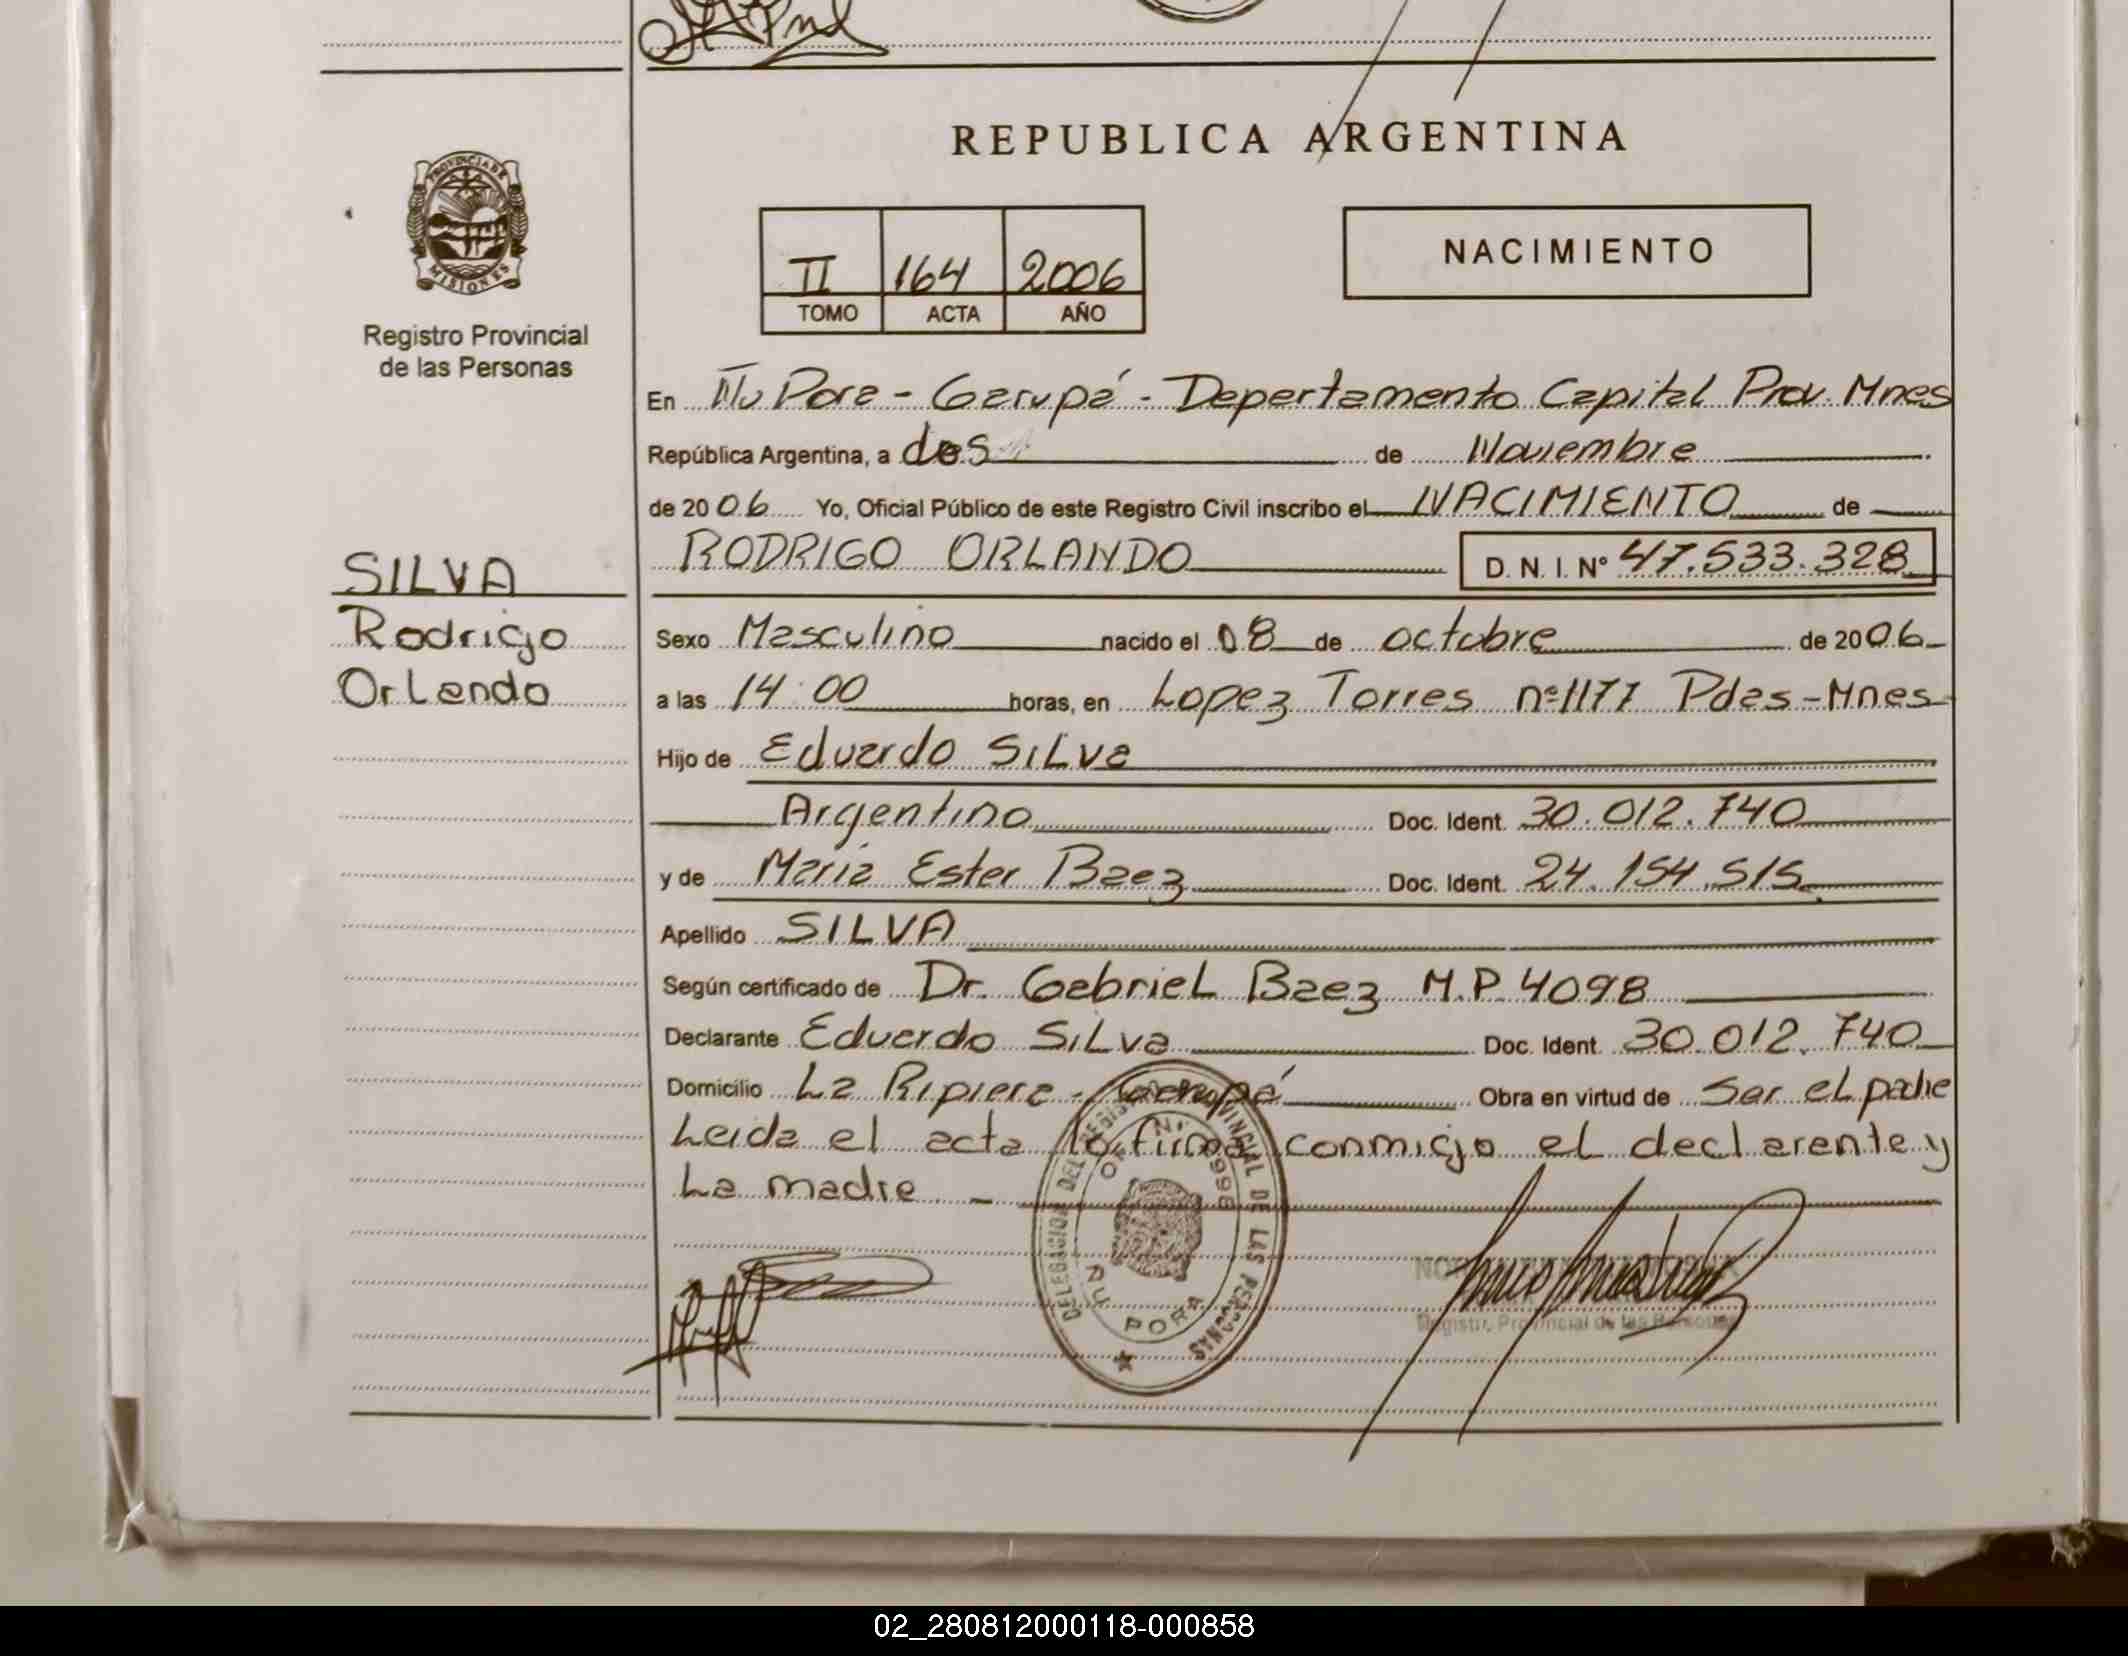 REPUBLICA ARGENTINA
PROVINCIA DE
MISIONES
Registro Provincial
de las Personas
NACIMIENTO
II 164 2006
TOMO ACTA AÑO
En Ñu Pora - Garupá - Departamento Capital Prov. Mnes
República Argentina, a dos de Noviembre
de 2006 Yo, Oficial Público de este Registro Civil inscribo el NACIMIENTO de
RODRIGO ORLANDO D. N. I. N° 47.533.328
SILVA
Rodrigo
Orlando
Sexo Masculino nacido el 08 de octubre de 2006
a las 14:00 horas, en Lopez Torres nº1177 Pdas-Mnes
Hijo de Eduardo Silva
Argentino Doc. Ident. 30.012.740
y de Maria Ester Baez Doc. Ident. 24.154.515
Apellido SILVA
Según certificado de Dr. Gabriel Baez M.P. 4098
Declarante Eduardo Silva Doc. Ident. 30.012.740
Domicilio La Ripiera - Garupá Obra en virtud de Ser el padre
Leida el acta la firma conmigo el declarente y
La madre
DELEGACION DEL REGISTRO PROVINCIAL DE LAS PERSONAS
OF. N° 998
ÑU PORA
Registr. Provincial de las Personas
02_280812000118-000858